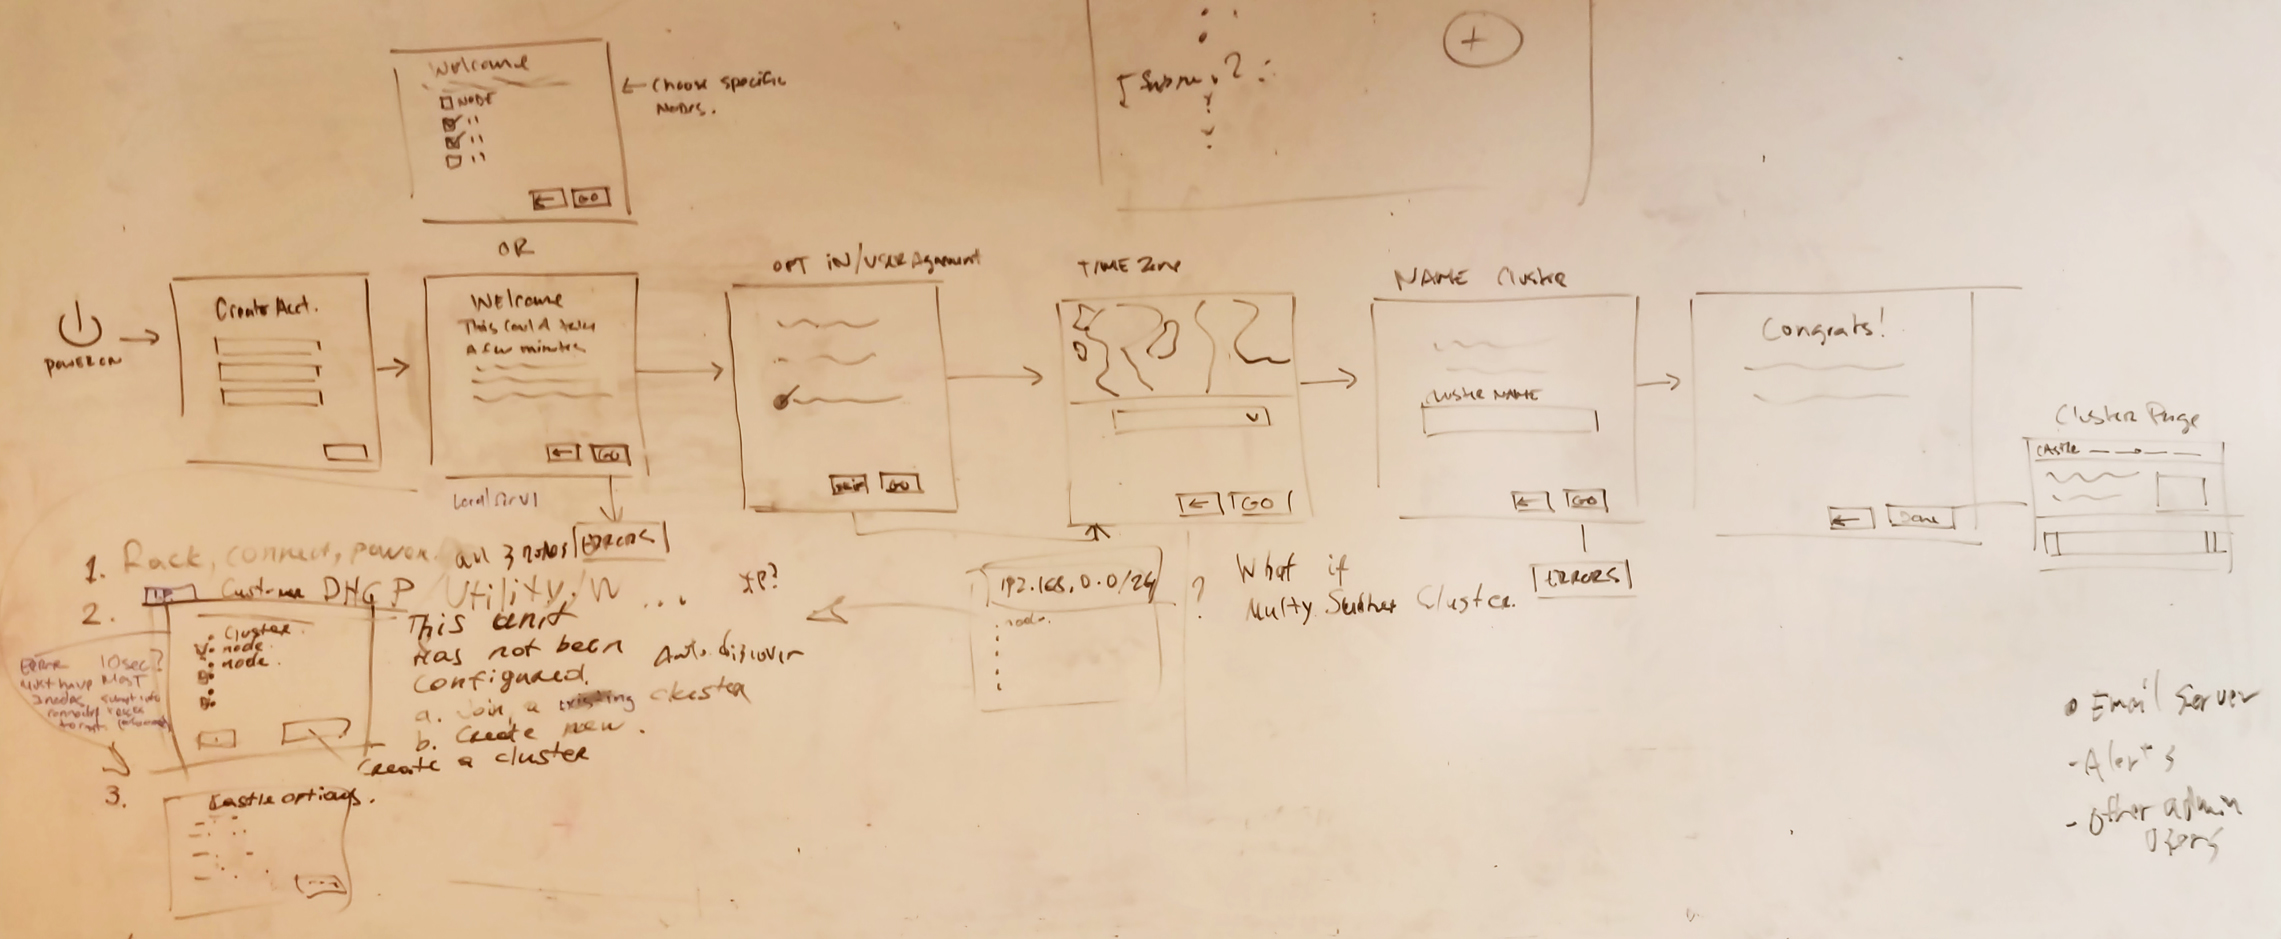 Welcome
NODE
GO
← Choose specific
Nodes.
+
OR
POWER ON
Create Acct.
Welcome
This could take
a few minutes
← GO
ERRORS
OPT IN/USER Agreement
GO
TIME Zone
← GO
NAME Cluster
Cluster NAME
← GO
ERRORS
Congrats!
← Done
Cluster Page
CASTLE
1. Rack, connect, power. all 3 nodes
2. Customer DHCP Utility
IP?
cluster
node
node
This unit
has not been
configured.
Auto discover
a. Join a existing cluster
b. Create new.
Create a cluster
ERROR 10sec?
Must have
3 nodes
3.
Castle options.
192.168.0.0/24
node
?
What if
Multy Subnet Cluster.
• Email Server
- Alerts
- Other admin
Users